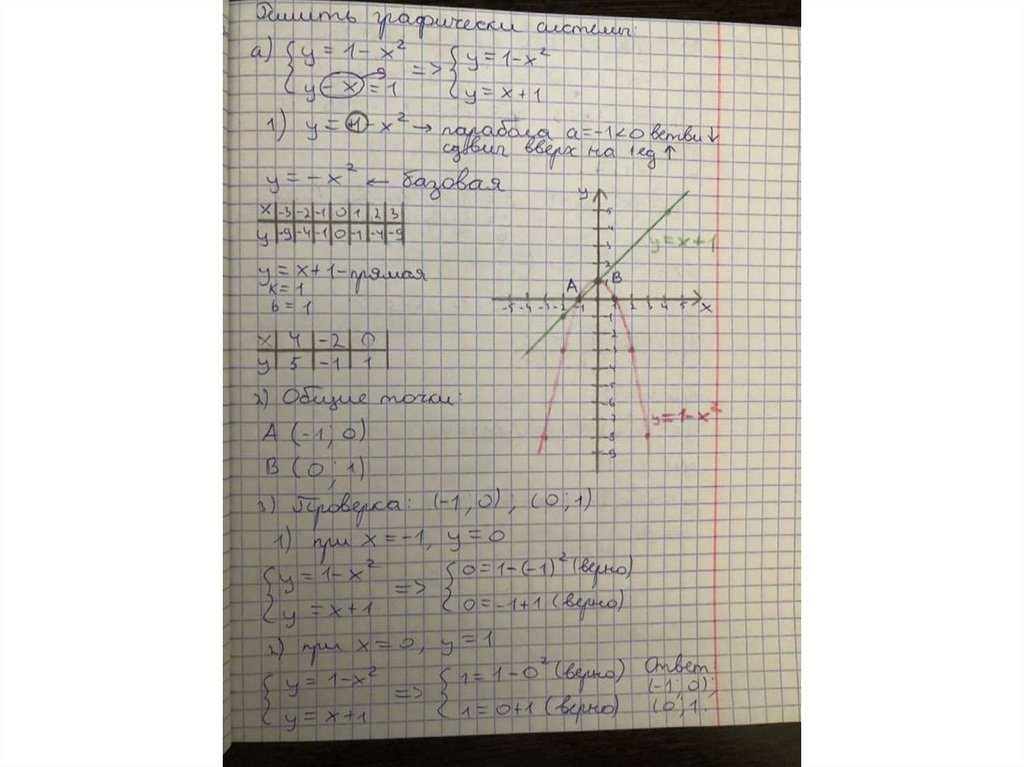 Решить графически системы:
а) { y = 1 - x²
y - x = 1
=> { y = 1 - x²
y = x + 1
1) y = +1 - x² → парабола a = -1 < 0 ветви ↓
сдвиг вверх на 1 ед ↑
y = -x² ← базовая
x | -3 | -2 | -1 | 0 | 1 | 2 | 3
y | -9 | -4 | -1 | 0 | -1 | -4 | -9
y = x + 1 - прямая
k = 1
b = 1
x | 4 | -2 | 0
y | 5 | -1 | 1
2) Общие точки:
A (-1; 0)
B (0; 1)
y
5
4
3
2
1
y = x + 1
A
B
-5 -4 -3 -2 -1 1 2 3 4 5 x
-1
-2
-3
-4
-5
-6
-7
-8
-9
y = 1 - x²
3) Проверка: (-1; 0); (0; 1)
1) при x = -1, y = 0
{ y = 1 - x²
y = x + 1
=> { 0 = 1 - (-1)² (верно)
0 = -1 + 1 (верно)
2) при x = 0, y = 1
{ y = 1 - x²
y = x + 1
=> { 1 = 1 - 0² (верно)
1 = 0 + 1 (верно)
Ответ
(-1; 0);
(0; 1.